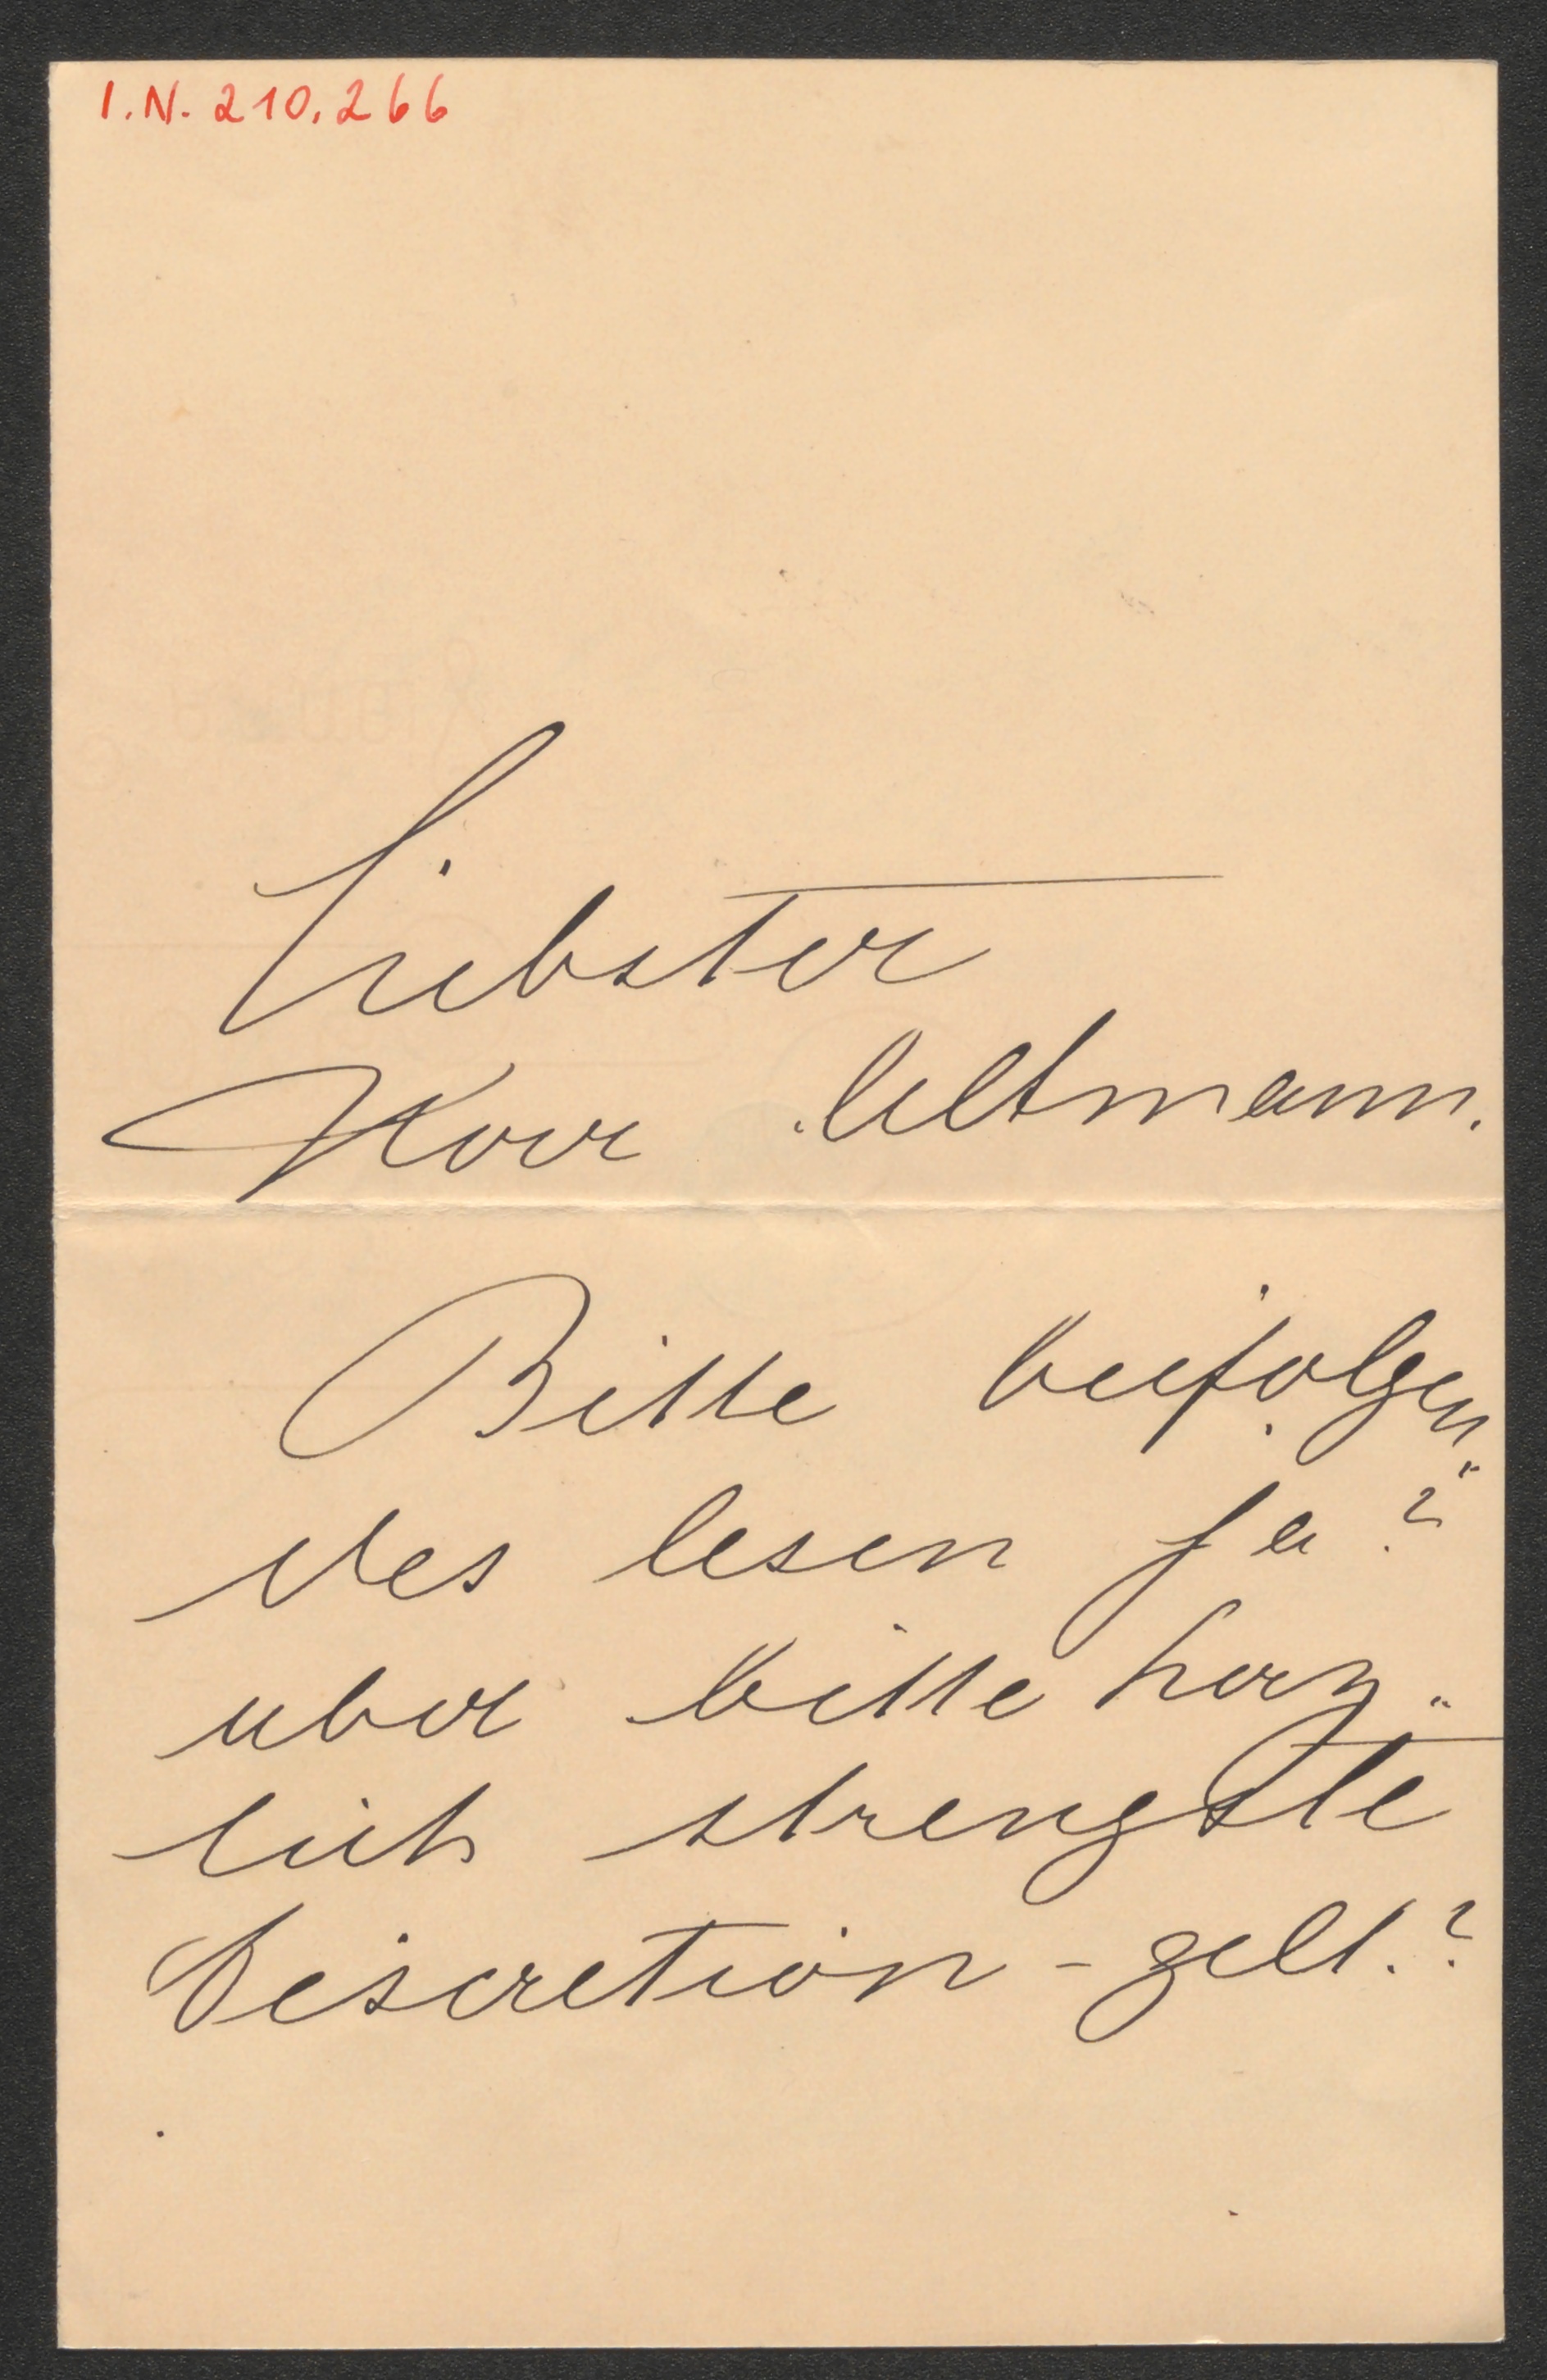 I.N. 210.266
Liebster
Herr Altmann.
Bitte beifolgen"
des lesen ja?
aber bitte herz"
lich strengste
Discretion - gelt.?